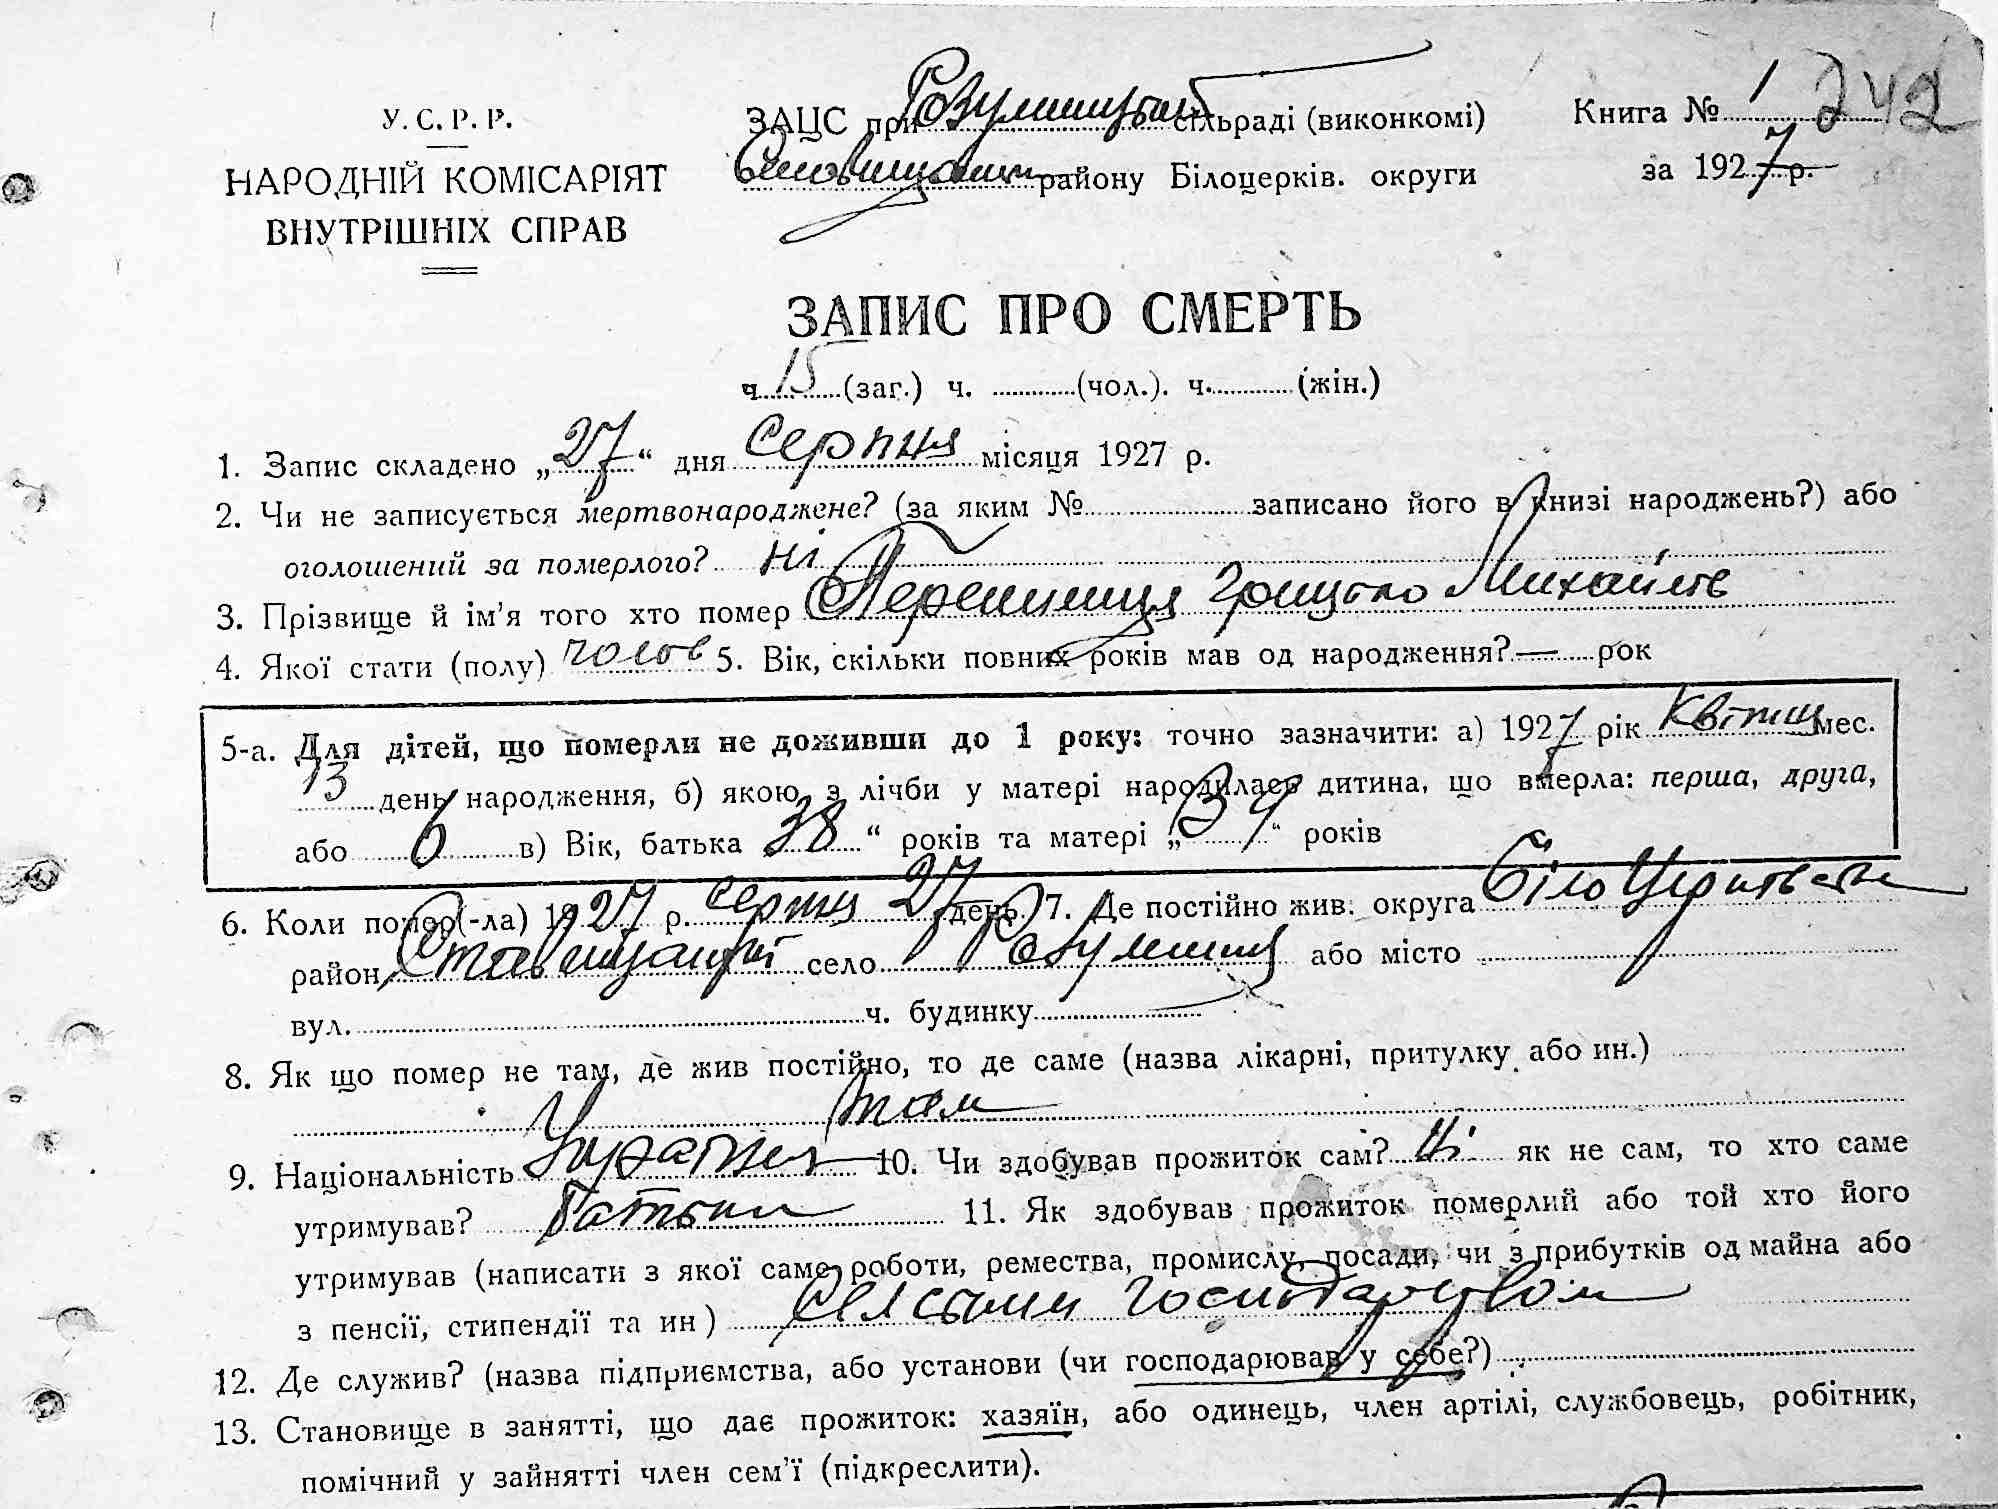 У.С.Р.Р.
НАРОДНІЙ КОМІСАРІЯТ
ВНУТРІШНІХ СПРАВ
ЗАЦС при Розумницькій сільраді (виконкомі)
району Білоцерків. округи
Книга № 1 242
за 1927 р.
ЗАПИС ПРО СМЕРТЬ
ч. 15 (заг.) ч. (чол.). ч. (жін.)
1. Запис складено „27“ дня Серпня місяця 1927 р.
2. Чи не записується мертвонароджене? (за яким № записано його в книзі народжень?) або
оголошений за померлого? ні
3. Прізвище й ім'я того хто помер Грицько Михайлів
4. Якої стати (полу) чолов 5. Вік, скільки повних років мав од народження? — рок
5-а. Для дітей, що померли не доживши до 1 року: точно зазначити: а) 1927 рік Квітня мес.
13 день народження, б) якою з лічби у матері народилась дитина, що вмерла: перша, друга,
або 6 в) Вік, батька 38 “ років та матері „34“ років
6. Коли помер(-ла) 1927 р. серпня 27 день 7. Де постійно жив: округа Білоцерківська
район Ставищанський село Розумниця або місто
вул. ч. будинку
8. Як що помер не там, де жив постійно, то де саме (назва лікарні, притулку або ин.)
там
9. Національність 10. Чи здобував прожиток сам? Ні як не сам, то хто саме
утримував? батьки 11. Як здобував прожиток померлий або той хто його
утримував (написати з якої саме роботи, ремества, промислу, посади, чи з прибутків од майна або
з пенсії, стипендії та ин) господарством
12. Де служив? (назва підприємства, або установи (чи господарював у себе?)
13. Становище в занятті, що дає прожиток: хазяїн, або одинець, член артілі, службовець, робітник,
помічний у зайнятті член сем'ї (підкреслити).